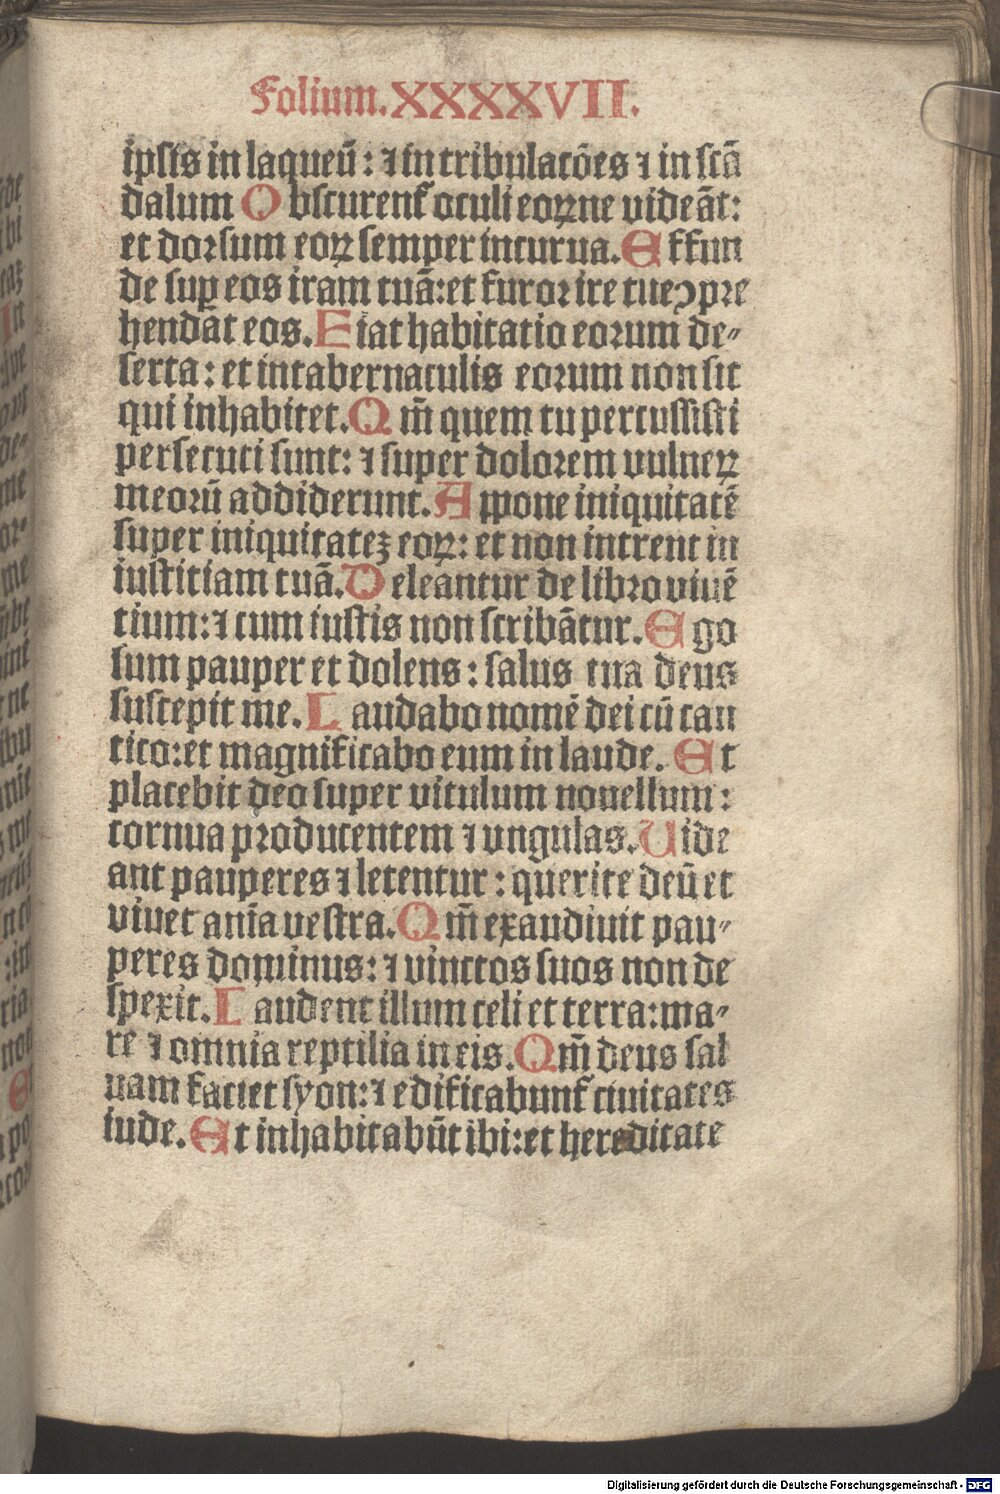 Folium.XXXXVII.
ipsis in laqueū: ⁊ in tribulatōes ⁊ in scā
dalum Obscurent᷑ oculi eoꝝne videāt:
et dorsum eoꝝ semper incurua. Effun
de suꝑ eos iram tuā:et furor ire tue ↄpre
hendāt eos. Fiat habitatio eorum de⸗
serta: et intabernaculis eorum non sit
qui inhabitet. Qm̄ quem tu percussisti
persecuti sunt: ⁊ super dolorem vulneꝝ
meorū addiderunt. Appone iniquitatē
super iniquitateꝫ eoꝝ: et non intrent in
iustitiam tuā. Deleantur de libro viuē
tium: ⁊ cum iustis non scribātur. Ego
sum pauper et dolens: salus tua deus
suscepit me. Laudabo nomē dei cū can
tico:et magnificabo eum in laude. Et
placebit deo super vitulum nouellum:
cornua producentem ⁊ vngulas. Uide
ant pauperes ⁊ letentur: querite deū et
viuet anīa vestra. Qm̄ exaudiuit pau⸗
peres dominus: ⁊ vinctos suos non de
spexit. Laudent illum celi et terra:ma⸗
re ⁊ omnia reptilia in eis. Qm̄ deus sal
uam faciet syon: ⁊ edificabunt᷑ ciuitates
iude. Et inhabitabūt ibi:et hereditate
Digitalisierung gefördert durch die Deutsche Forschungsgemeinschaft - DFG